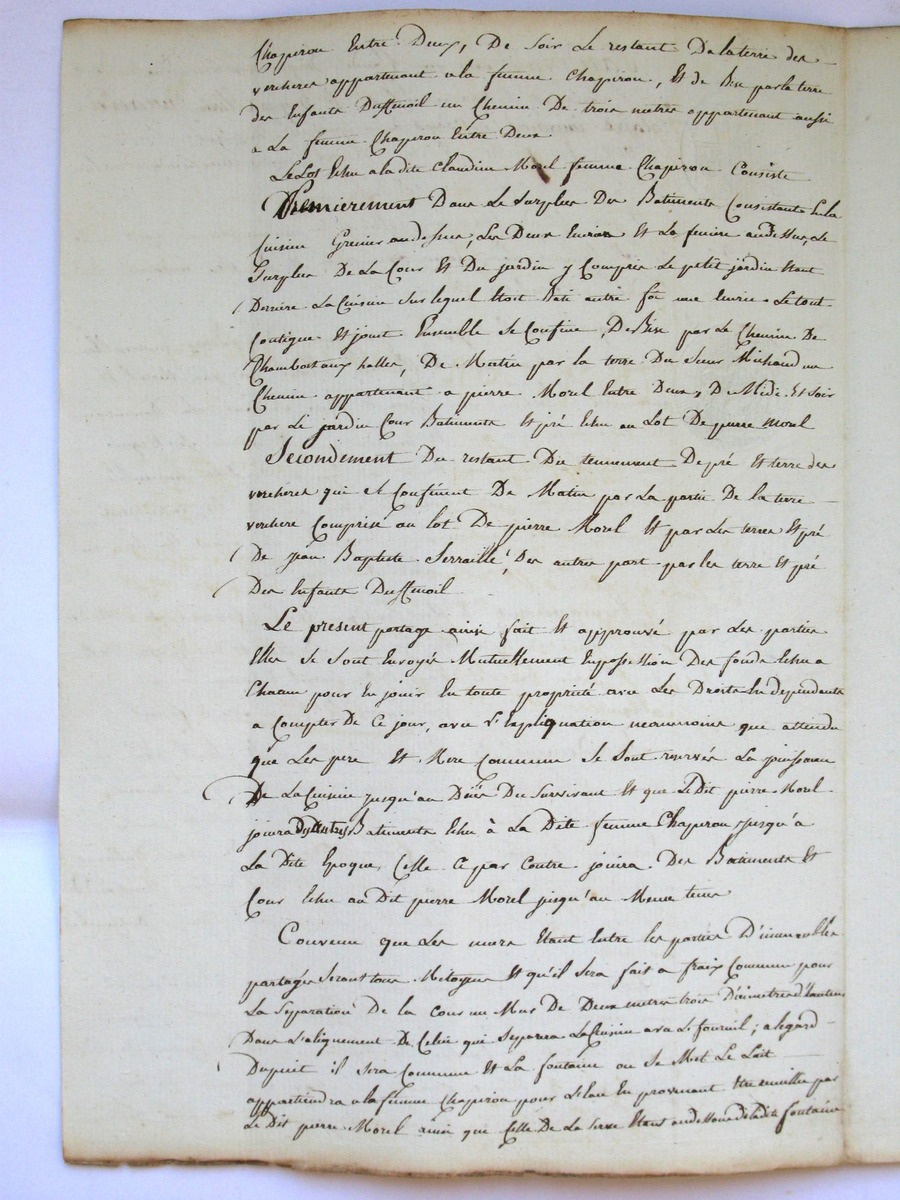 Chapiron Entre Deux, De soir Le restant De la terre des
vercheres appartenant a la femme Chapiron, Et de Bise par la terre
des Enfants Dussenoil un Chemin De trois metres appartenant aussi
a La femme Chapiron Entre Deux
Le Lot Echu a la dite Claudine Morel femme Chapiron Consiste
Premierement Dans Le Surplus Des Batiments Consistants En la
Cuisine Grenier au dessus, Les Deux Ecuries Et La feniere au dessus, Le
Surplus De La Cour Et Du jardin y Compris Le petit jardin Etant
Derriere La Cuisine sur lequel Etoit Bati autre foi une Ecurie. Le tout
Contigue Et joint Ensemble Se Confine, De Bise par Le Chemin De
Chambost aux halles, De Matin par la terre Du Sieur Michaud un
Chemin appartenant a pierre Morel Entre Deux, De Midi Et Soir
par Le jardin Cour Batiments Et pré Echu au Lot De pierre Morel
Secondement Du restant Du tennement De pré Et terre des
vercheres qui se Confinent De Matin par La partie De la terre
verchere Comprise au lot De pierre Morel Et par Les terres Et pré
De jean Baptiste Serraille, Des autres part par les terre Et pré
Des Enfants Dussenoil
Le présent partage ainsi fait Et approuvé par Les parties
Elles Se Sont Envoyés Mutuellement En possession Des fonds Echu a
Chacun pour En jouir En toute propriété avec Les Droits En dependants
a Compter De Ce jour, avec L'Expliquation neanmoins que attendu
que Les pere Et Mere Commune Se Sont reservés La jouissance
De La Cuisine jusqu'au Décès Du Survivant Et que Le Dit pierre Morel
jouira des autres Batiments Echu à La Dite femme Chapiron jusqu'a
La Dite Epoque, Celle Ci par Contre jouira Des Batiments Et
Cour Echu au Dit pierre Morel jusqu'au Meme tems
Convenu que Les murs Etant Entre les parties D'immeubles
partagés Seront tous Mitoyens Et qu'il Sera fait a fraix Commun pour
La Separation De la cour un Mur De Deux metres trois Décimetres d'hauteur
Dans L'alignement De Celui qui Separera La Cuisine avec Le fournil; a légard
Du puit il Sera Commun Et La fontaine ou Se Met Le Lait
appartiendra a la femme Chapiron pour L'eau En provenant Etre par
Le Dit pierre Morel ainsi que Celle De La Serve Etant au dessous de la dite fontaine